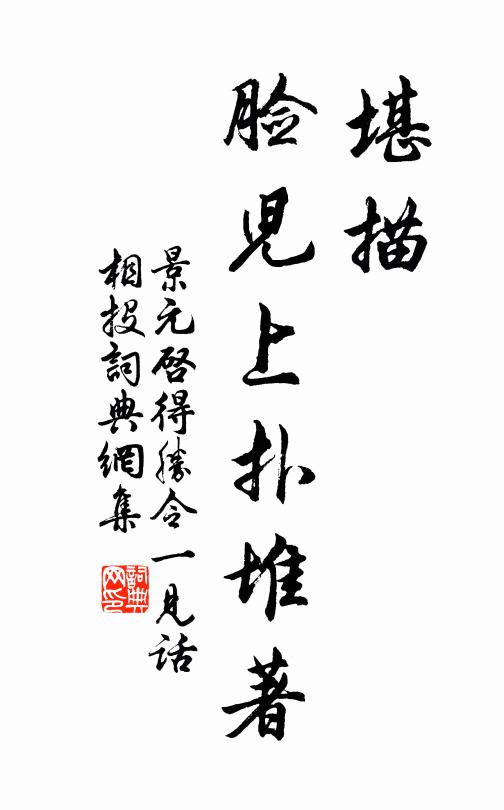 堪描
脸児上扑堆著
景元啓得勝令一見話
相投詞典網集
詞典
网印